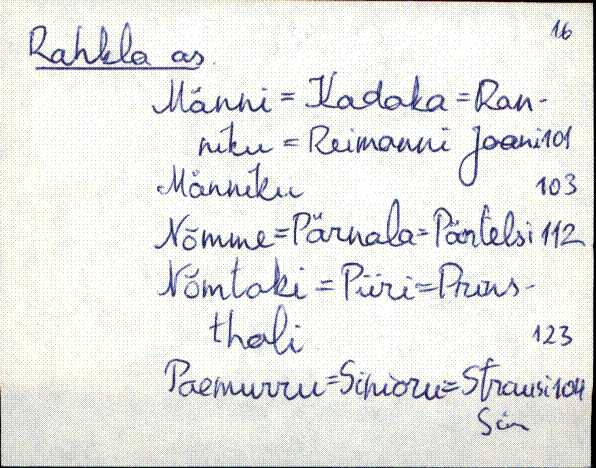 16
Rahkla as.
Männi = Kadaka = Ran-
niku = Reimanni Jaani 101
Männiku 103
Nõmme = Pärnala = Pärtelsi 112
Nõmtaki = Piiri = Pruns-
thali 123
Paemurru = Sinioru = Strausi 104
Sin